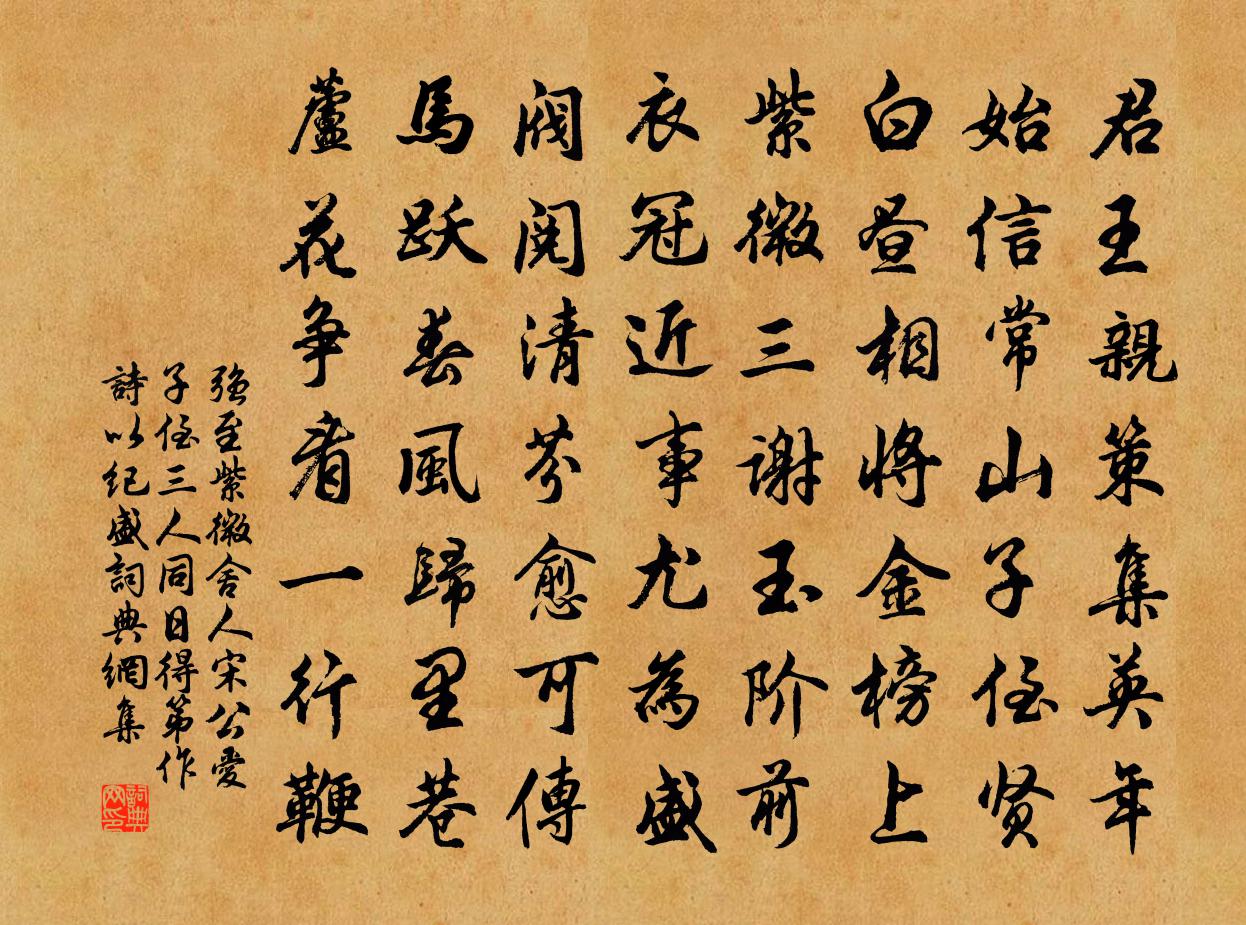 君王親策集英年
始信常山子侄贤
白昼相将金榜上
紫微三谢玉阶前
衣冠近事尤為盛
阀阅清芬愈可傳
馬跃春風歸里巷
蘆花争看一行鞭
強至紫微舍人宋公愛
子侄三人同日得第作
詩以纪盛詞典網集
詞典
网印